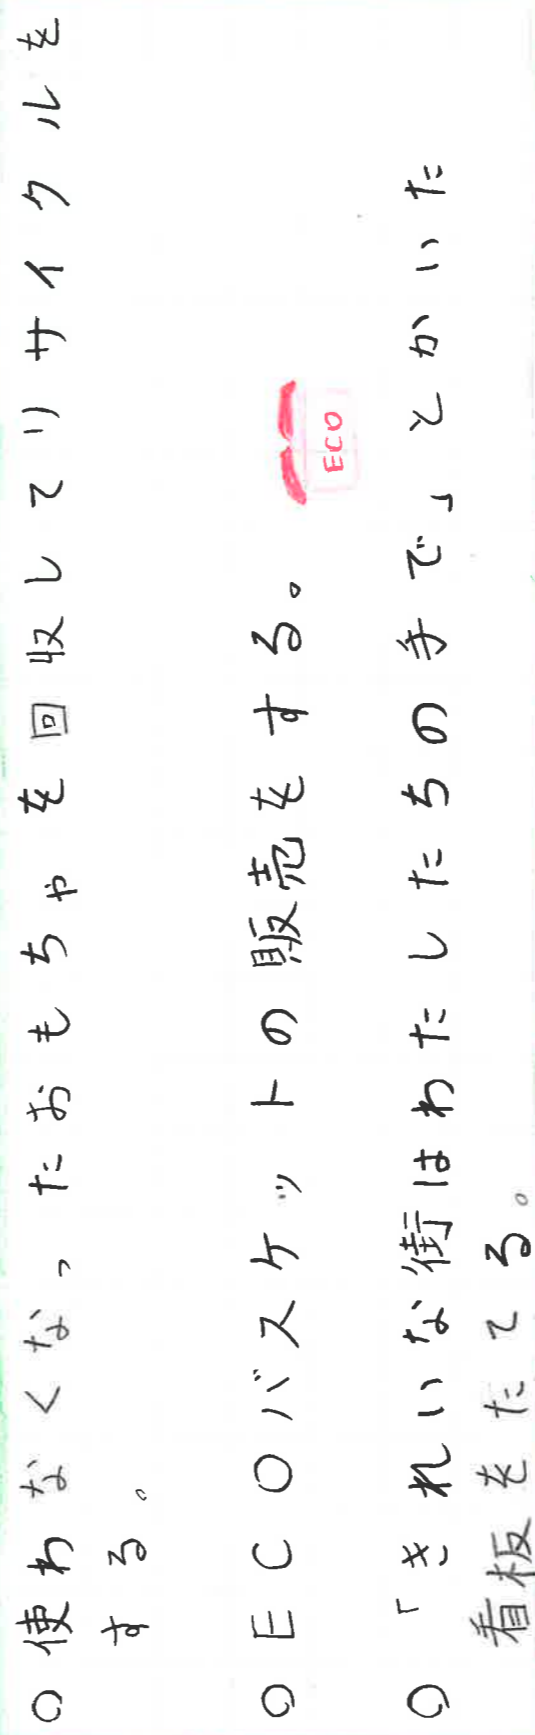 ○使わなくなったおもちゃを回収してリサイクルを
する。
○ECOバスケットの販売をする。
ECO
○「きれいな街はわたしたちの手で」とかいた
看板をたてる。